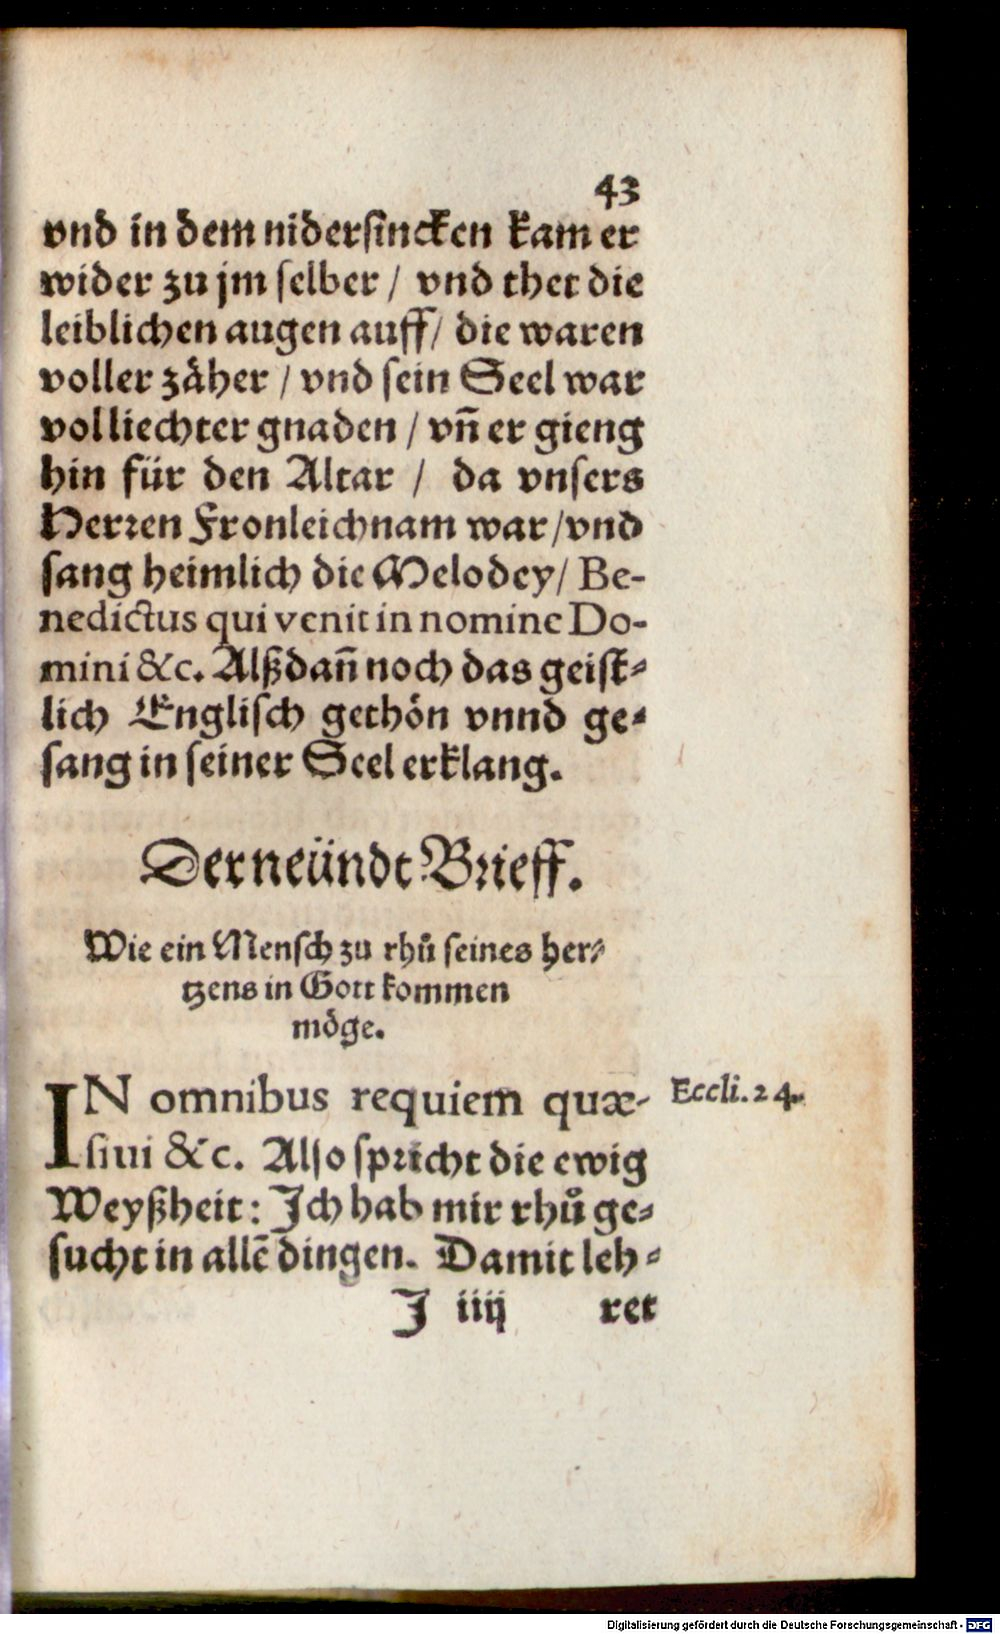 43
vnd in dem nidersincken kam er
wider zu jm selber / vnd thet die
leiblichen augen auff / die waren
voller zåher / vnd sein Seel war
vol liechter gnaden / vñ er gieng
hin für den Altar / da vnsers
Herren Fronleichnam war / vnd
sang heimlich die Melodey / Be-
nedictus qui venit in nomine Do-
mini &c. Alßdañ noch das geist-
lich Englisch gethön vnnd ge-
sang in seiner Seel erklang.
Der neündt Brieff.
Wie ein Mensch zu rhů seines her-
tzens in Gott kommen
möge.
IN omnibus requiem quæ- Eccli. 24.
siui &c. Also spricht die ewig
Weyßheit: Ich hab mir rhů ge-
sucht in allẽ dingen. Damit leh-
J iiij ret
Digitalisierung gefördert durch die Deutsche Forschungsgemeinschaft - DFG